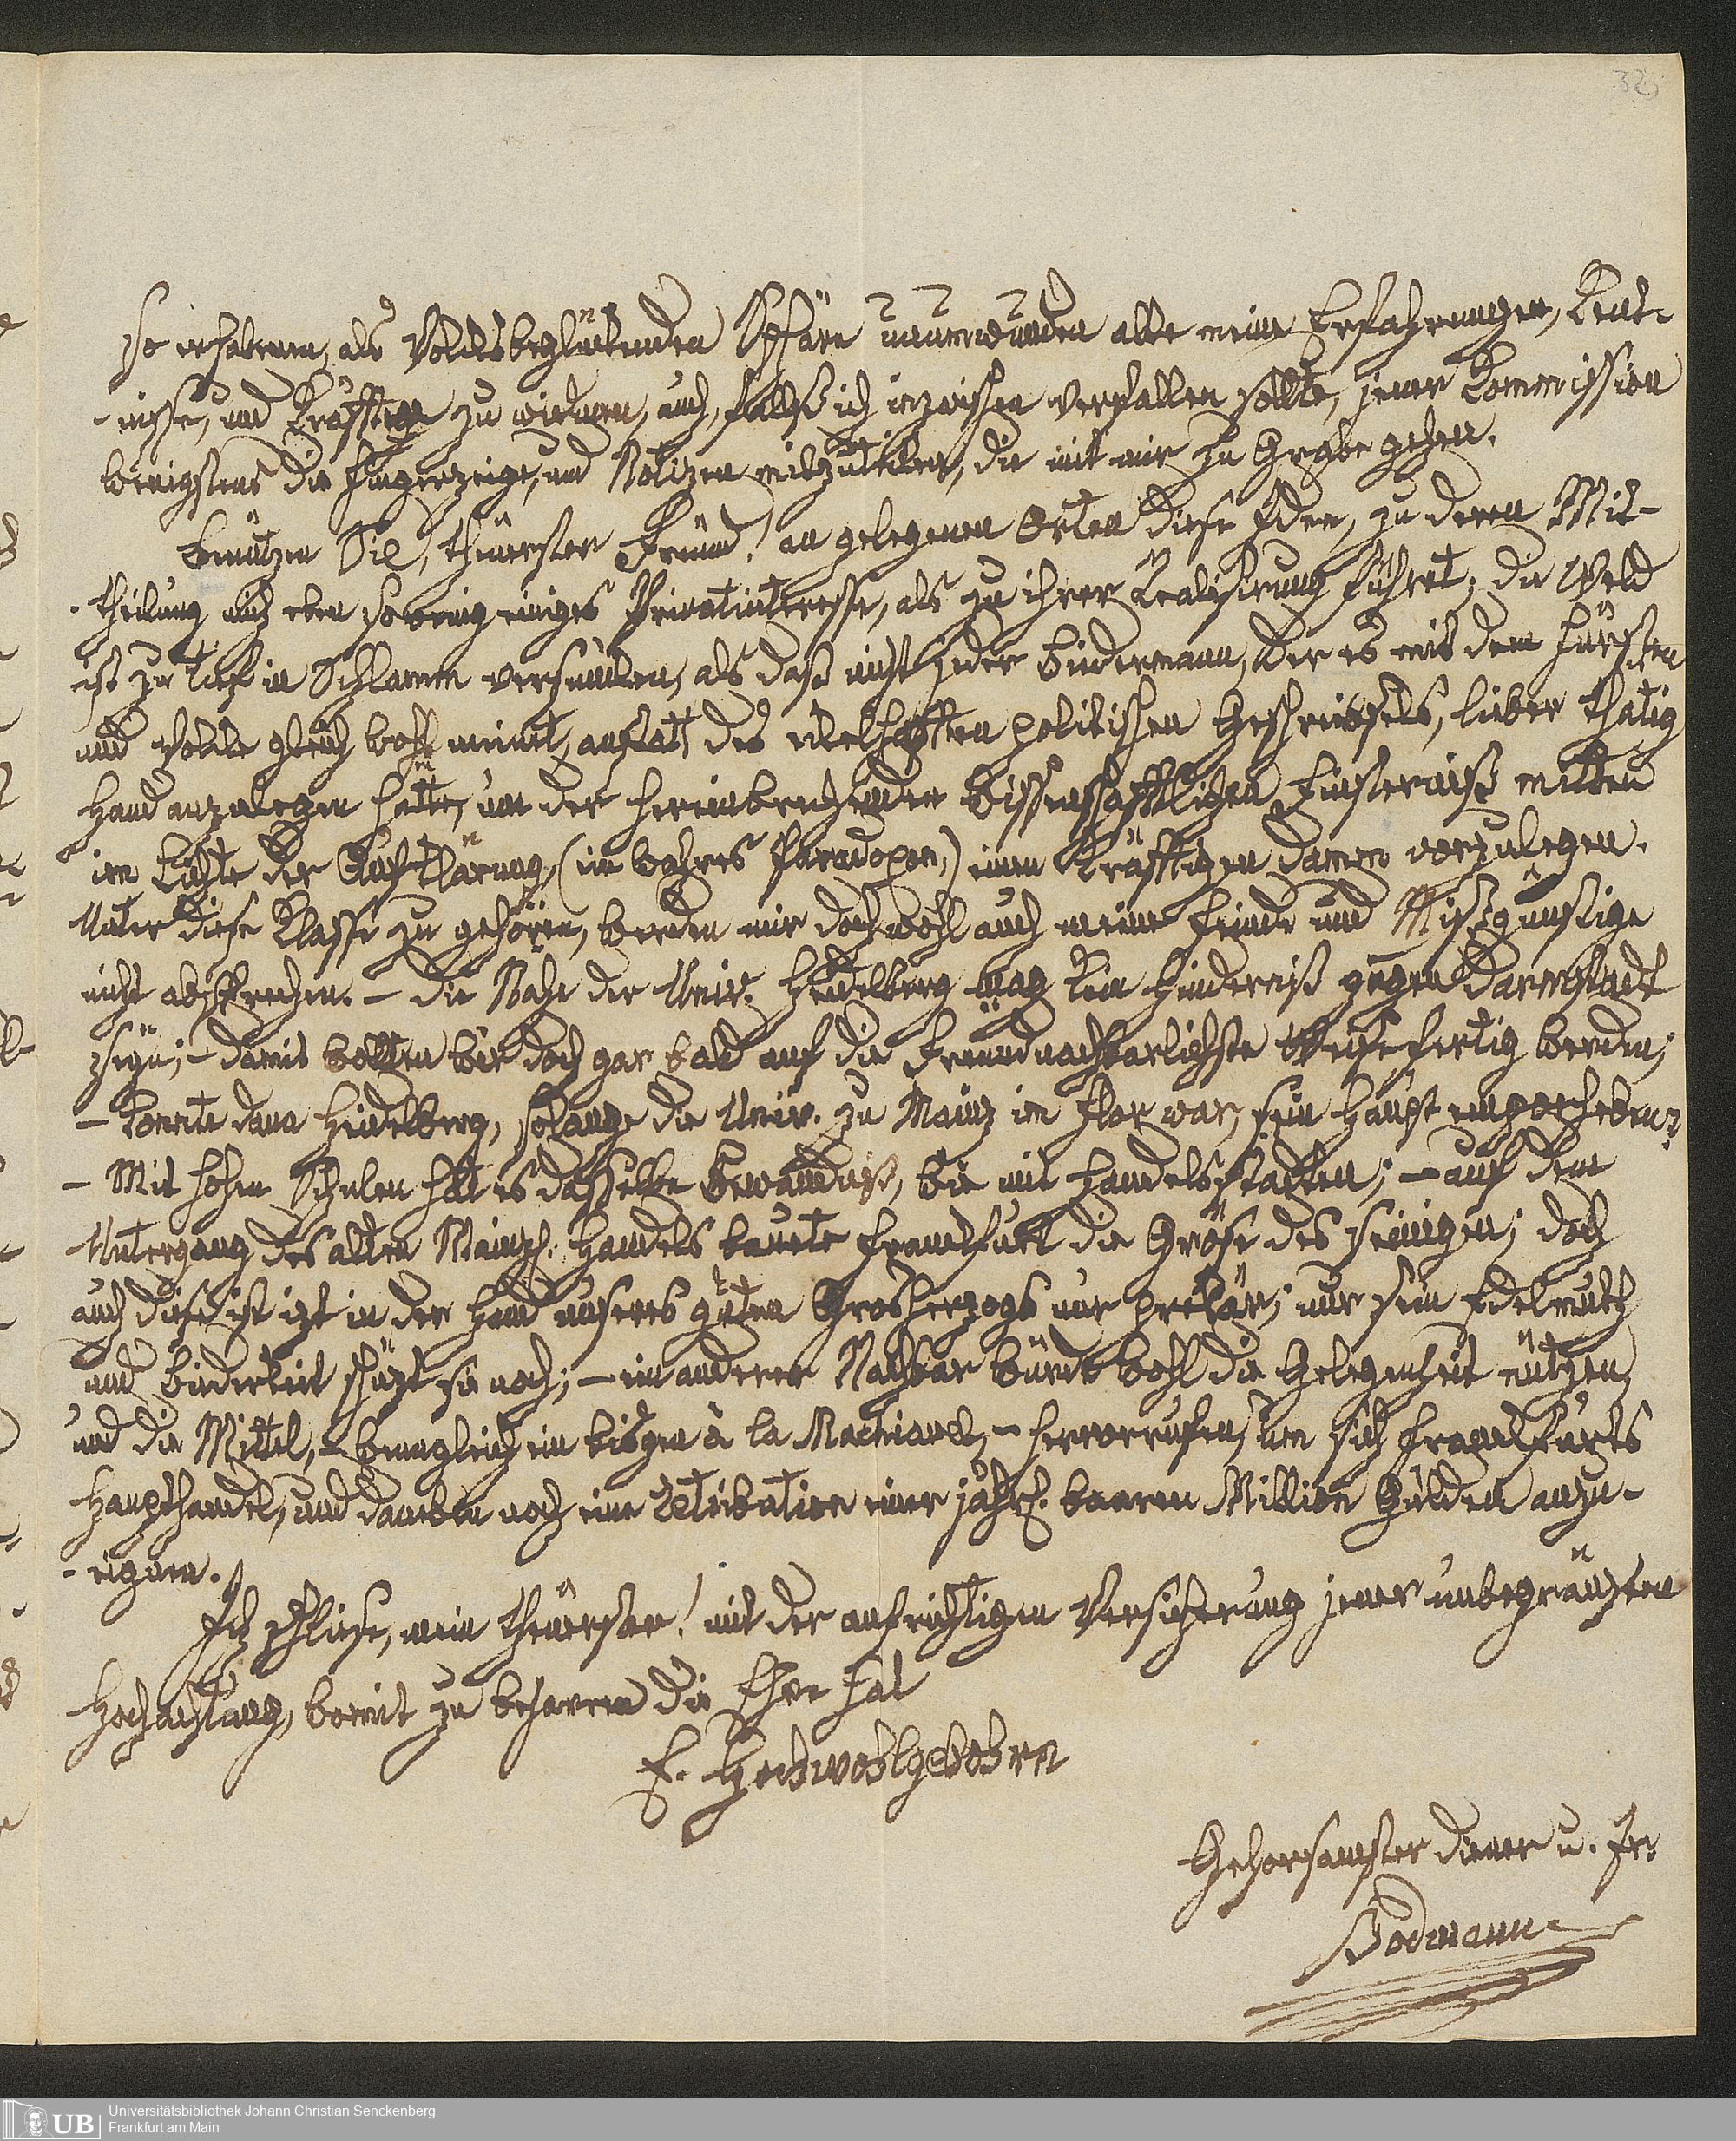 32
so erhabenen, als Volksbeglückenden Sphäre unumwunden alle meine Erfahrungen, Kent-
-nisse, und Kräffte zu widmen, auch, falls ich inzwischen verfallen sollte, jener Kommission
wenigstens die Fingerzeige, und Notizen mitzutheilen, die mit mir zu Grabe gehen.
Benützen Sie, theuerster Freund! an gelegenen Orten diese Idee, zu deren Mit-
-theilung mich eben so wenig einiges Privatinteresse, als zu ihrer Realisirung führet; die Welt
ist zu tief in Schlamm versunken, als daß nicht jeder Biedermann, der es mit dem Fürsten
und Volke gleich wohl meinet, anstatt des ekelhafften politischen Geschreibsels, lieber thätig
Hand anzulegen hätte, um der hereinbrechenden wissenschafftlichen Finsterniß mitten
im Lichte der Aufklärung, (ein wahres Paradoxon,) einen kräfftigen Damm vorzulegen.
Unter diese Klasse zu gehören, werden mir doch wohl auch meine Feinde und Mißgünstige
nicht absprechen. – Die Nähe der Univ. Heidelberg mag kein Hinderniß gegen Darmstadt
seyn; – damit wollten wir doch gar bald auf die freundnachbarlichste Weise fertig werden;
– konnte dann Heidelberg, solange die Univ. zu Mainz im Flor war, sein Haupt emporheben?
– Mit hohen Schulen hat es dasselbe Bewandniß, wie mit Handelsstädten; – auf dem
Untergang des alten Mainz. Handels bauete Frankfurt die Gröse des seinigen; doch
auch diese ist izt in der Hand unseres guten Grosherzogs nur prekär; nur sein Edelmuth
und Biederkeit schüzt sie noch; – ein anderer Nachbar würde wohl die Gelegenheit nützen,
und die Mittel, – wenngleich ein bisgen à la Machiavel, – hervorrufen, um sich Frankfurts
Haupthandel, und daneben noch eine Retribution einer jährl. baaren Million Gulden anzu-
-eignen.
Ich schliese, mein theuerster! mit der aufrichtigen Versicherung jener unbegränzten
Hochachtung, womit zu beharren die Ehre hat
E. Hochwohlgebohrn
Gehorsamster Diener u. Fr.
Bodmann
UB Universitätsbibliothek Johann Christian Senckenberg
Frankfurt am Main